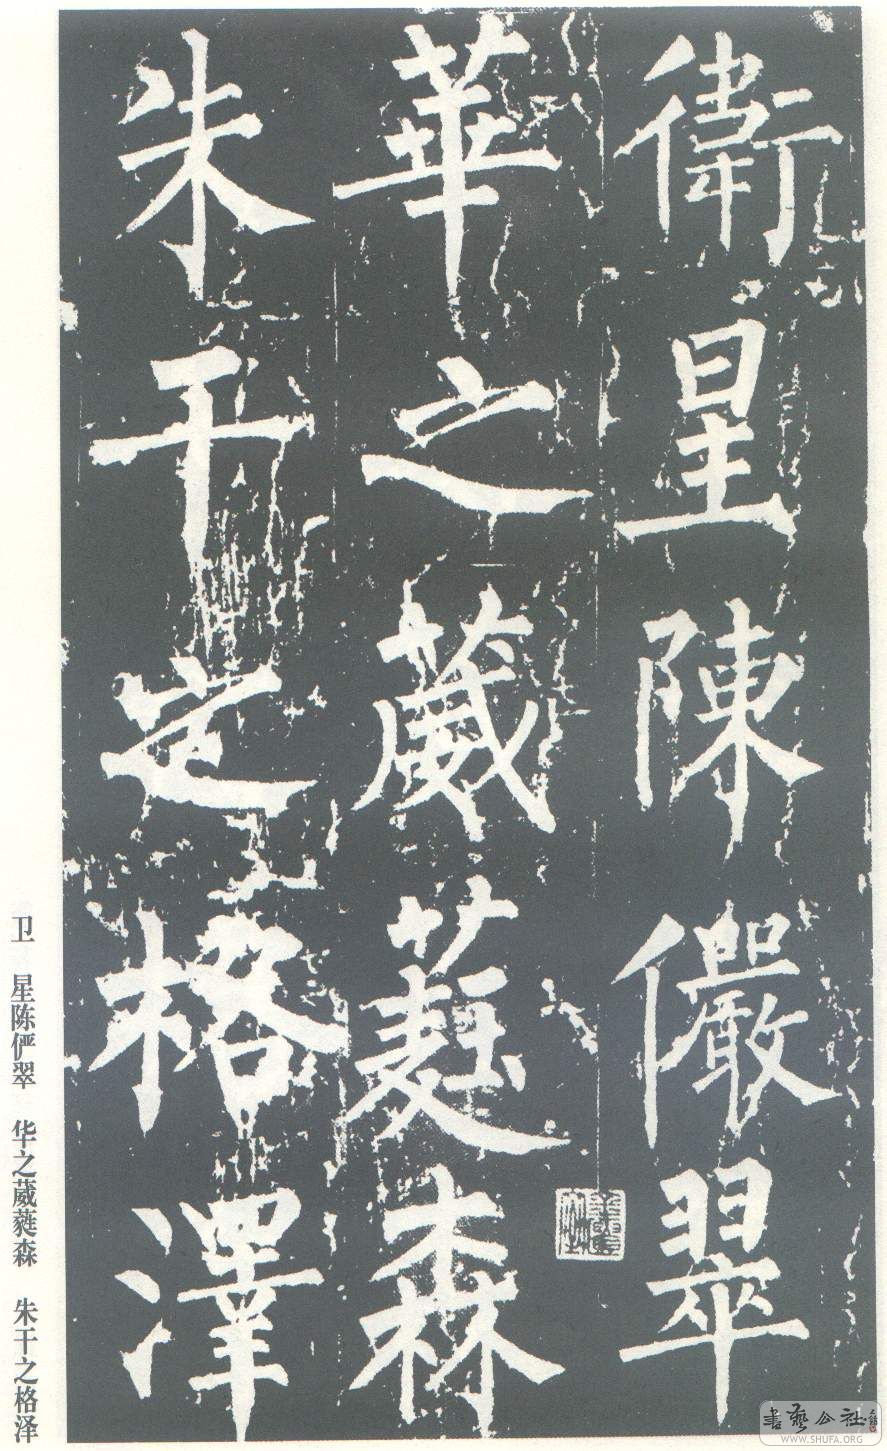 衛星陳儼翠
華之葳蕤森
朱干之格澤
卫 星陈俨翠 华之葳蕤森 朱干之格泽
書藝公社
WWW.SHUFA.ORG